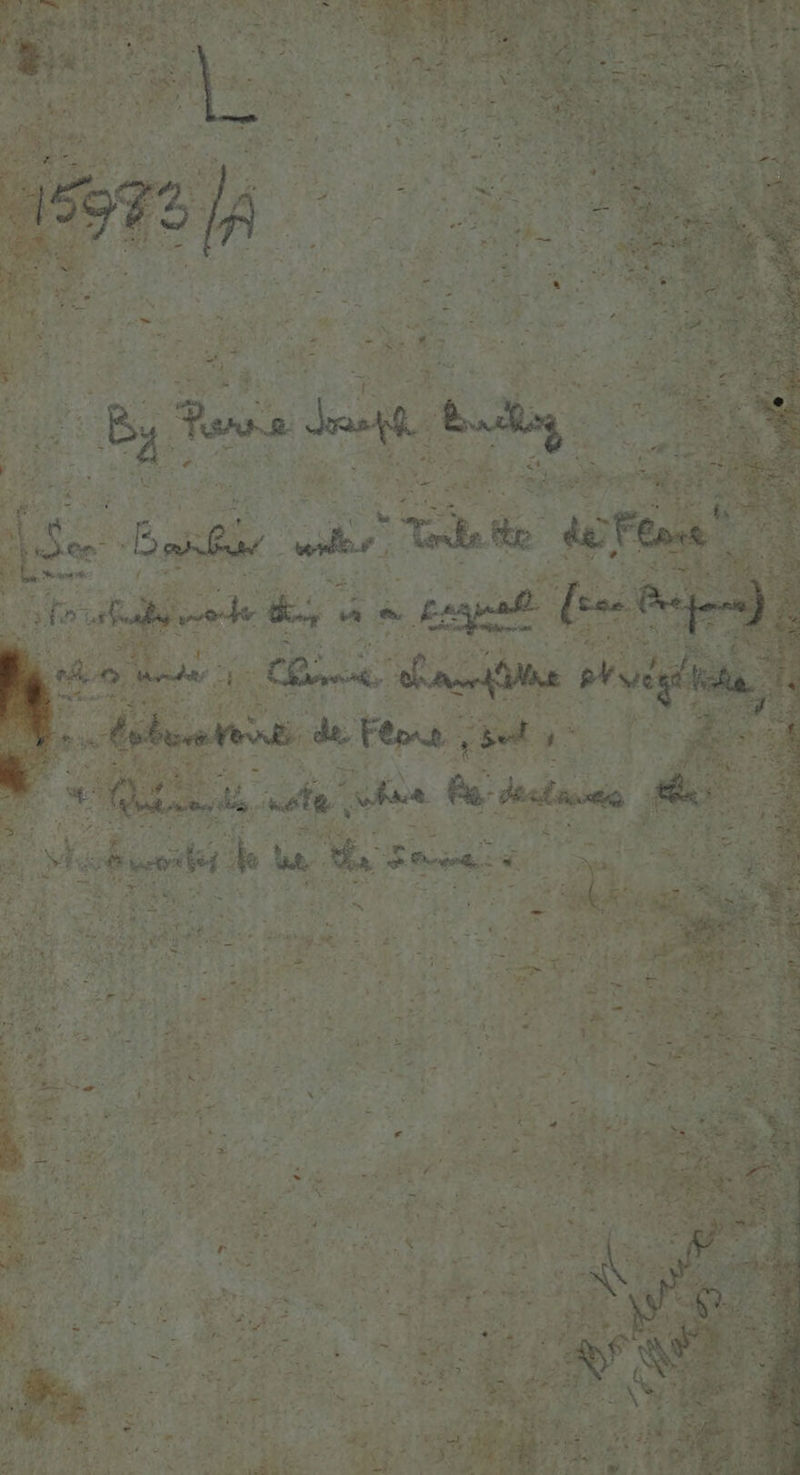 L
15973/A
By Pierre Joseph Buchoz
See Barbier under "Toilette de Flore"
to which this is a sequel (see Preface)
also under Chimie champêtre et végétale,
Laboratoire de Flore, and
Quérard's note where he declares the
works to be the same.